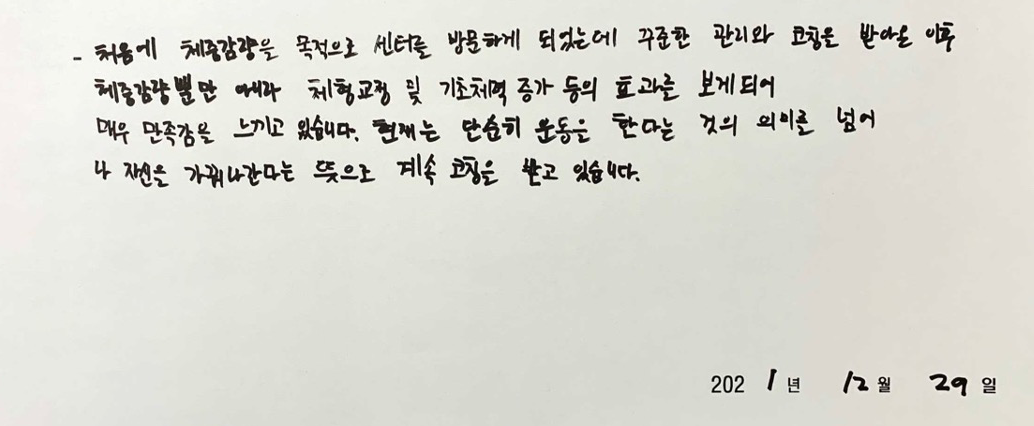 - 처음에 체중감량을 목적으로 센터를 방문하게 되었는데 꾸준한 관리와 코칭을 받아온 이후
체중감량뿐만 아니라 체형교정 및 기초체력 증가 등의 효과를 보게되어
매우 만족감을 느끼고 있습니다. 현재는 단순히 운동을 한다는 것의 의미를 넘어
나 자신을 가꿔나간다는 뜻으로 계속 코칭을 받고 있습니다.
2021년 12월 29일